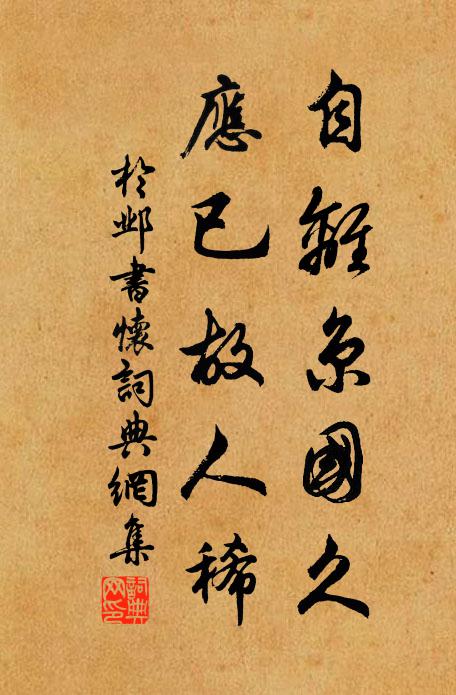 自離京國久
應已故人稀
於鄴書懷詞典網集
詞典網印